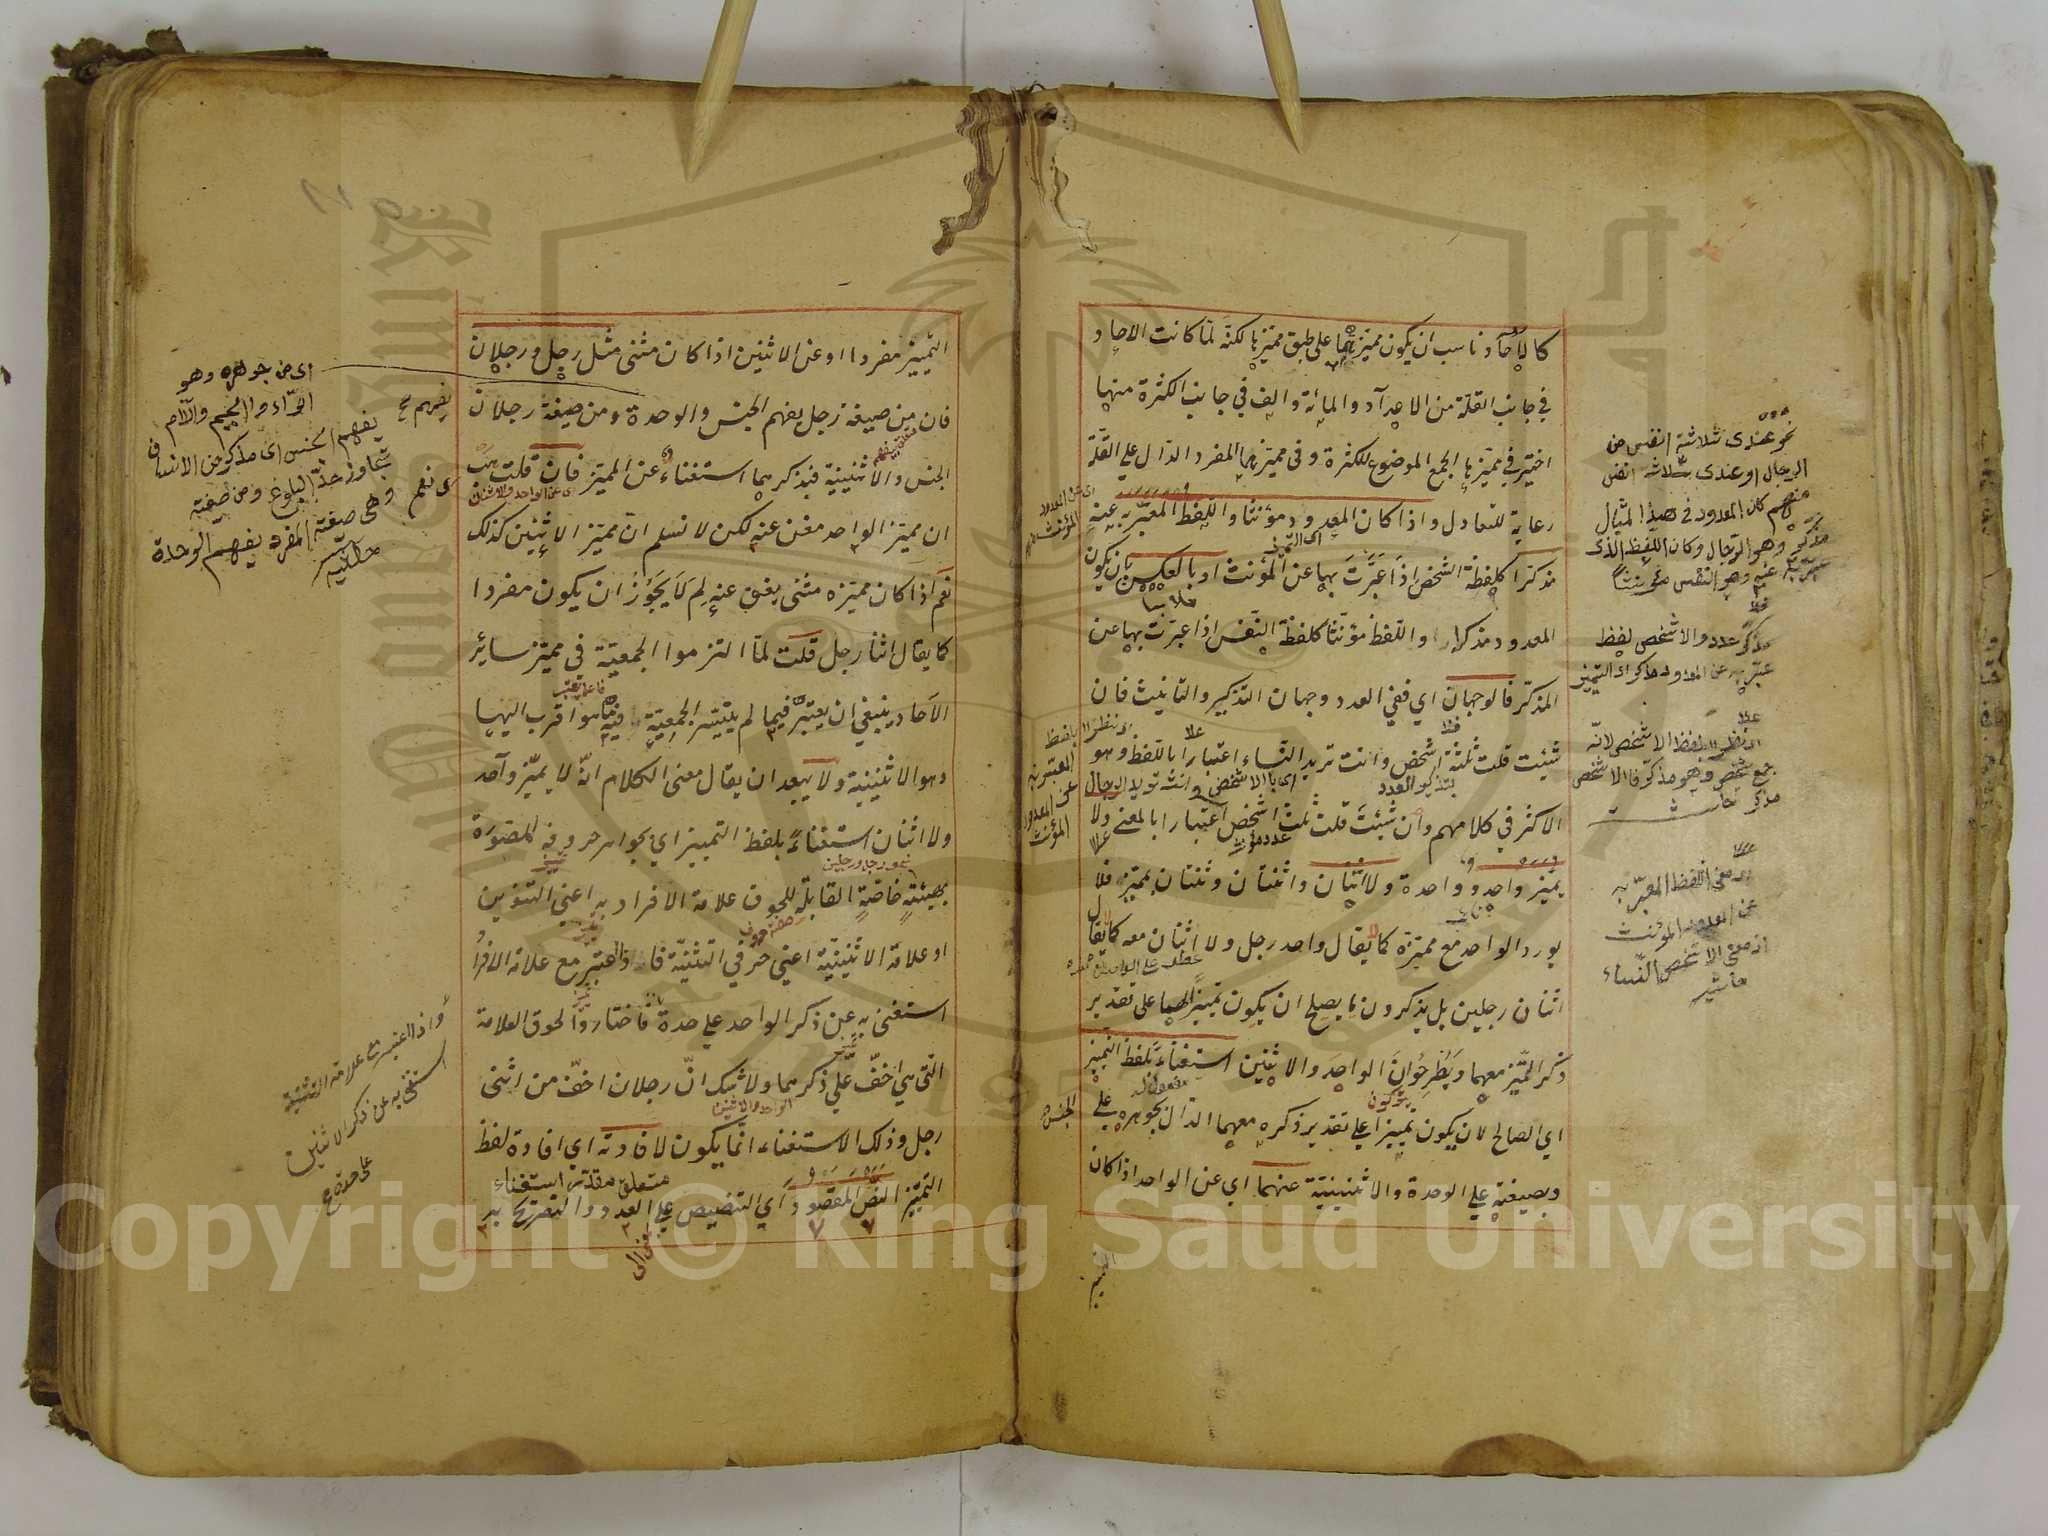 كالآحاد ناسب ان يكون مميزهما على طبق مميزها لكنه لما كانت الاحاد
في جانب القلة من الاعداد والمائة والف في جانب الكثرة منها
اختير في مميزها الجمع الموضوع للكثرة وفي مميزهما المفرد الدال على القلة
رعاية للتعادل واذا كان المعدود مؤنثا واللفظ المعبر به عنه
مذكرا كلفظة الشخص اذا عبرت بها عن المؤنث او بالعكس بان يكون
المعدود مذكرا واللفظ مؤنثا كلفظة النفس اذا عبرت بها عن
المذكر فالوجهان اي ففي العدد وجهان التذكير والتانيث فان
شئت قلت ثلثة اشخص وانت تريد النساء اعتبارا باللفظ وهو
الاكثر في كلامهم وان شئت قلت ثلث اشخص اعتبارا بالمعنى ولا
يميز واحد وواحدة ولا اثنان واثنتان وثنتان بمميز فلا
يورد الواحد مع مميزة كما يقال واحد رجل ولا اثنان معه كما يقال
اثنان رجلين بل يذكرون ما يصلح ان يكون تمييزا لهما على تقدير
ذكر المميز معهما ويطرحون الواحد والاثنين استغناء بلفظ التمييز
اي الصالح لان يكون تمييزا على تقدير ذكره معهما الدال بجوهره على
الجنس
وبصيغته على الوحدة والاثنينية عنهما اي عن الواحد اذا كان
نحو عندى ثلاثة انفس من
الرجال او عندى ثلاثة انفس
منهم كان المعدود في هذا المثال
مذكر وهو الرجال وكان اللفظ الذى
عبر به عنه وهو النفس مؤنثا
مذكر عدد والاشخص لفظ
عبر به عن المعدود مذكر اى التمييز
اى نظرا الى لفظ الاشخص لانه
جمع شخص وهو مذكر فالاشخص
مذكر
اى معنى اللفظ المعبر به
عن المعدود المؤنث
اذ معنى الاشخص النساء
حاشيه
اى نظرا الى لفظ
المعبر به
عن المعدود
المؤنث
بتذكير العدد
التمييز مفردا او عن الاثنين اذا كان مثنى مثل رجل ورجلان
فان من صيغة رجل يفهم الجنس والوحدة ومن صيغة رجلان
الجنس والاثنينية فبذكرهما استغناء عن المميز فان قلت هب
ان مميز الواحد مغن عنه لكن لا نسلم ان مميز الاثنين كذلك
نعم اذا كان مميزه مثنى يغني عنه لم لا يجوز ان يكون مفردا
كما يقال اثنا رجل قلت لما التزموا الجمعية في مميز ساير
الآحاد ينبغي ان يعتبر فيما لم يتيسر الجمعية فيه ما هو اقرب اليها
وهو الاثنينية ولا يبعد ان يقال معنى الكلام انه لا يميز واحد
ولا اثنان استغناء بلفظ التمييز اي بجواهر حروفه المصورة
بهيئة خاصة القابلة للحوق علامة الافراد به اعني التنوين
او علامة الاثنينية اعني حرفي التثنية فاذا اعتبر مع علامة الافراد
استغنى به عن ذكر الواحد على حدة فاختاروا لحوق العلامة
التي هي اخف على ذكرهما ولا شك ان رجلان اخف من اثنى
رجل وذلك الاستغناء انما يكون لافادته اي افادة لفظ
التمييز النص المقصود اي التنصيص على العدد والتصريح به
متعلق مقدر استغناء
اى من جوهره وهو
الراء والجيم واللام
يفهم الجنس اى مذكر من الانسان
يتجاوز حد البلوغ ومن صيغته
وهى صيغة المفرد يفهم الوحدة
واذا اعتبر مع علامة التثنية
استغنى به عن ذكر الاثنين
على حدة
Copyright © King Saud University